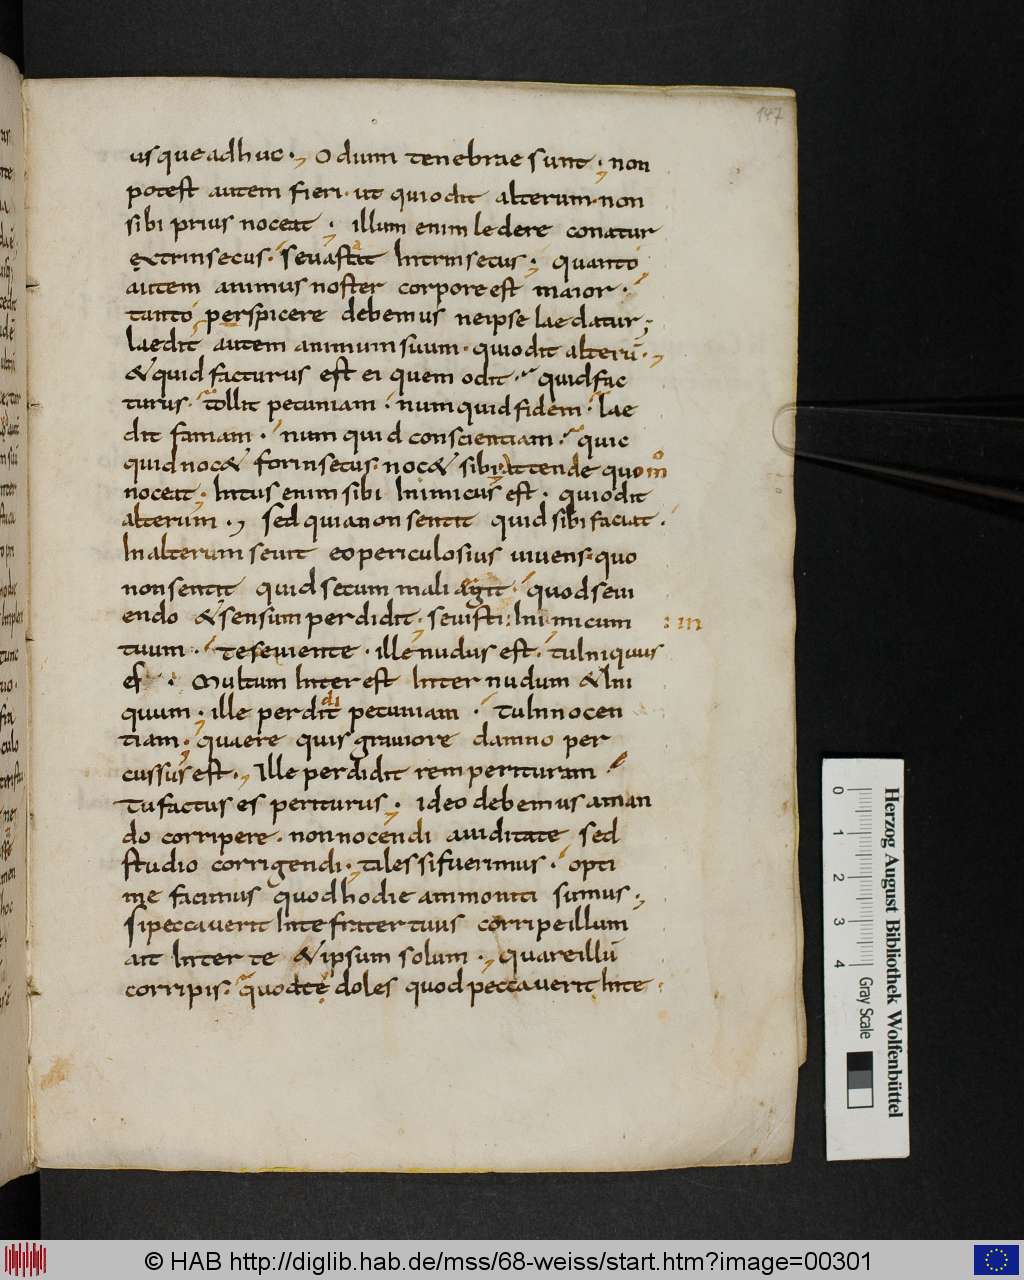 147
usque adhuc ·, Odium tenebrae sunt ; non
potest autem fieri · ut qui odit alterum · non
sibi prius noceat ; illum enim ledere conatur
extrinsecus · se uastat Intrinsecus ; quanto
autem animus noster corpore est maior ·
tanto perspicere debemus ne ipse laedatur ;
laedit autem animum suum · qui odit alterū ·,
& quid facturus est ei quem odit · quid fac
turus · tollit pecuniam · numquid fidem · lae
dit famam · num quid conscientiam · quic
quid noc& forinsecus : noc& sibi attende quomo
noceat ; Intus enim sibi Inimicus est · qui odit
alterum ·, sed quia non sentit quid sibi faciat ·
In alterum seuit eo periculosius uiuens · quo
non sentit quid secum mali agit · quod seui
endo & sensum perdidit ; seuisti : In inimicum : in
tuum · te seuiente · ille nudus est · tu Iniquus
es · Multum Inter est Inter nudum & Ini
quum ; ille perdidit pecuniam · tu Innocen
tiam ; quaere quis grauiore damno per
cussus est ·, Ille perdidit rem perituram ·
Tu factus es periturus ; ideo debemus aman
do corripere · non nocendi auiditate sed
studio corrigendi ; tales si fuerimus · opti
me facimus quod hodie ammoniti sumus ·,
si peccauerit In te frater tuus corripe illum
ait Inter te & ipsum solum ·, quare illū
corripis : quod te doles quod peccauerit In te ·
0 1 2 3 4
Gray Scale
Herzog August Bibliothek Wolfenbüttel
© HAB http://diglib.hab.de/mss/68-weiss/start.htm?image=00301